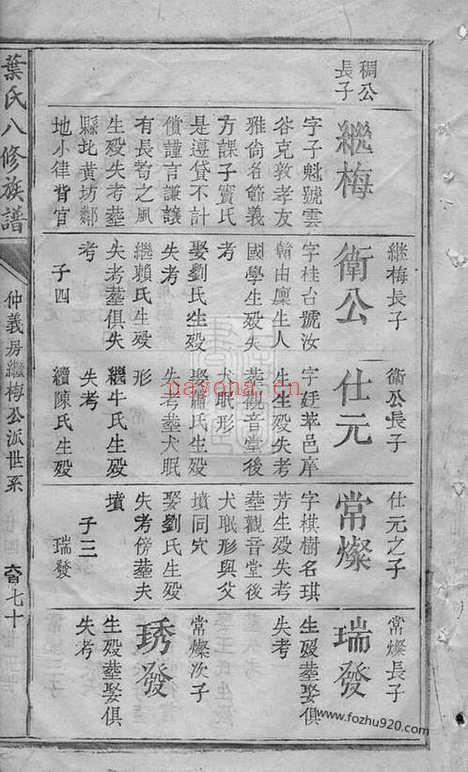 稠公長子
繼梅
字子魁號雲
谷克敦孝友
雅尙名節義
方課子竇氏
是遵貸不計
償謹言謙讓
有長者之風
生殁失考塟
縣北黃坊鄰
地小律背官
繼梅長子
衛公
字桂台號汝
翰由廩生入
國學生殁失
考
娶劉氏生殁
失考
繼賴氏生殁
失考塟俱失
考
子四
衛公長子
仕元
字廷萃邑庠
生生殁失考
塟觀音堂後
犬眠形
娶蕭氏生殁
失考塟犬眠
形
繼牛氏生殁
失考
續陳氏生殁
仕元之子
常燦
字棋樹名琪
芳生殁失考
塟觀音堂後
犬眠形與父
墳同穴
娶劉氏生殁
失考傍塟夫
墳
子三
瑞發
常燦長子
瑞發
生殁塟娶俱
失考
常燦次子
琇發
生殁塟娶俱
失考
葉氏八修族譜
仲義房繼梅公派世系
七十
nayona.cn
www.fozhu920.com